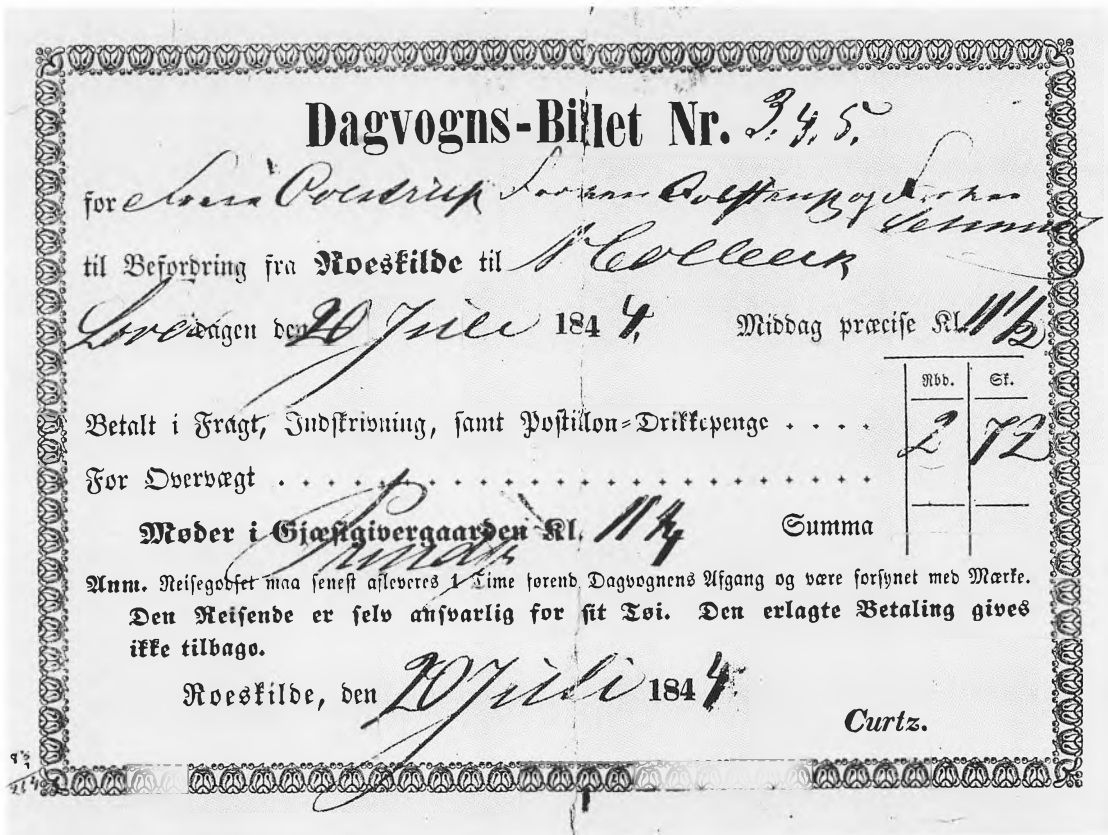 Dagvogns-Billet Nr. 3. 4. 5.
for
til Befordring fra Roeskilde til
dagen den 20 Juli 1844. Middag præcise Kl. 11 1/2
Rbd. Sk.
Betalt i Fragt, Indskrivning, samt Postillon-Drikkepenge . . . . 2 72
For Overvægt . . . . . . . . . . . . . . . . . . . . .
Møder i Gjæstgivergaarden Kl. 11 Summa
Anm. Reisegodset maa senest afleveres 1 Time førend Dagvognens Afgang og være forsynet med Mærke.
Den Reisende er selv ansvarlig for sit Tøi. Den erlagte Betaling gives
ikke tilbage.
Roeskilde, den 20 Juli 1844.
Curtz.